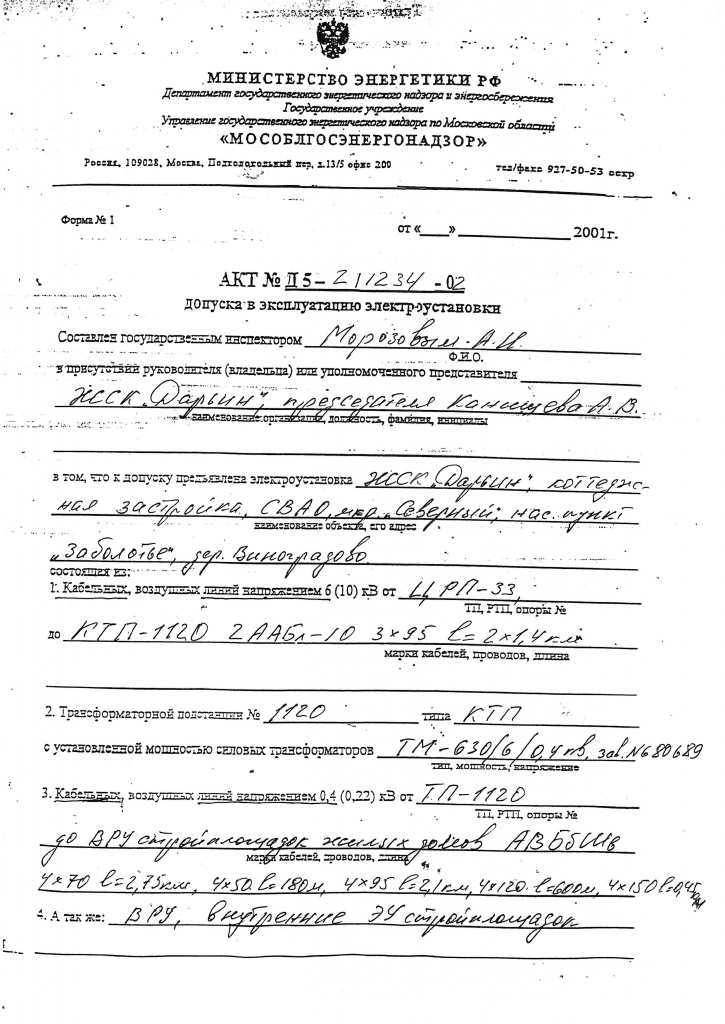 МИНИСТЕРСТВО ЭНЕРГЕТИКИ РФ
Департамент государственного энергетического надзора и энергосбережения
Государственное учреждение
Управление государственного энергетического надзора по Московской области
«МОСОБЛГОСЭНЕРГОНАДЗОР»
Россия, 109028, Москва, Подкопаевский пер, д.13/5 офис 200
тел/факс 927-50-53 секр
Форма № 1
от «___» ______________ 2001г.
АКТ № П 5 - 211234 - 02
допуска в эксплуатацию электроустановки
Составлен государственным инспектором Морозовым А.И.
Ф.И.О.
в присутствии руководителя (владельца) или уполномоченного представителя
ЖСК „Дарьин", председателя Канищева А.В.
наименование организации, должность, фамилия, инициалы
в том, что к допуску предъявлена электроустановка ЖСК „Дарьин", коттедж-
ная застройка, СВАО, мкр. „Северный", нас. пункт
наименование объекта, его адрес
„Заболотье", дер. Виноградово
состоящая из:
1. Кабельных, воздушных линий напряжением 6 (10) кВ от ЦРП-33,
ТП, РТП, опоры №
до КТП-1120 2ААБл-10 3×95 l=2×1,4 км
марки кабелей, проводов, длина
2. Трансформаторной подстанции № 1120 типа КТП
с установленной мощностью силовых трансформаторов ТМ-630/6/0,4 кв, зав.N680689
тип, мощность, напряжение
3. Кабельных, воздушных линий напряжением 0,4 (0,22) кВ от ТП-1120
ТП, РТП, опоры №
до ВРУ стройплощадок жилых домов АВБбШв
марки кабелей, проводов, длина
4×70 l=2,75км, 4×50 l=180м, 4×95 l=2,1км, 4×120 l=600м, 4×150 l=0,45 км
4. А так же: ВРУ, внутренние ЭУ стройплощадок